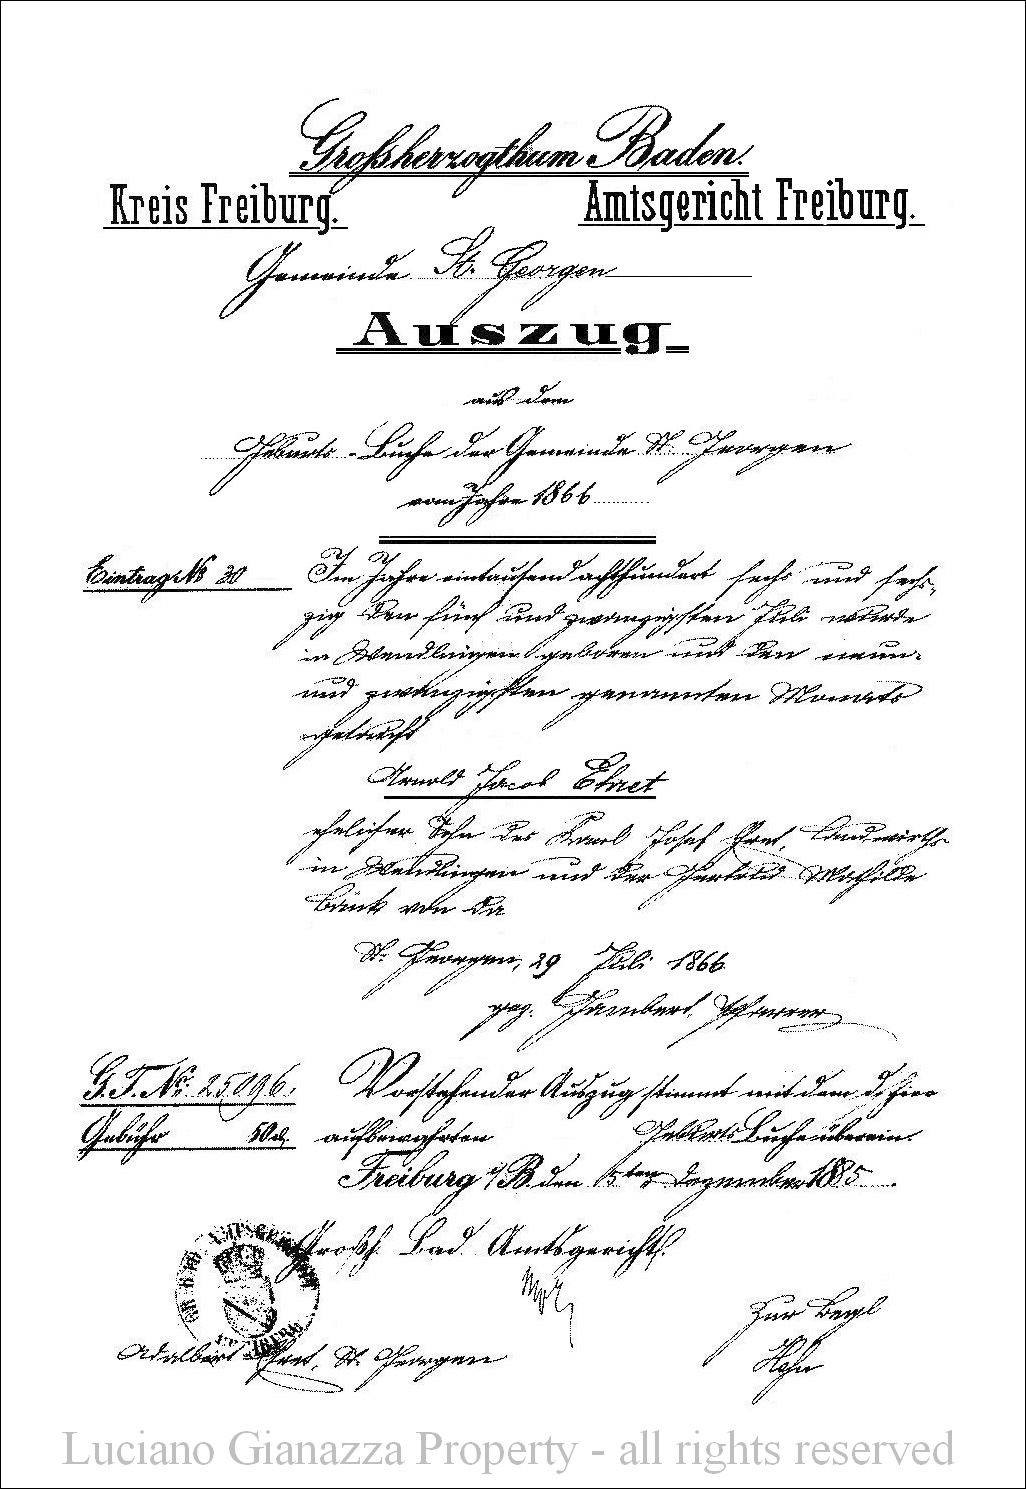 Großherzogthum Baden.
Kreis Freiburg. Amtsgericht Freiburg.
Gemeinde St. Georgen
Auszug
aus dem
Geburts-Buche der Gemeinde St. Georgen
vom Jahre 1866
Eintrag No 30
Im Jahre eintausend achthundert sechs und sech-
zig den fünf und zwanzigsten Juli wurde
in Wendlingen geboren und den neun-
und zwanzigsten genannten Monats
getauft
Arnold Jacob Ehret
ehelicher Sohn des Karl Josef Ehret, Landwirths
in Wendlingen und der Mathilde
von da
St. Georgen, 29 Juli 1866
gez. Pfarrer
G.T. No. 25096.
Gebühr 50 d.
Vorstehender Auszug stimmt mit dem d. hier
aufbewahrten Geburts Buche überein.
Freiburg i/B. den 15ten Dezember 1885.
Großh. Bad. Amtsgericht.
Zur Begl
Hahn
Adalbert Ehret, St. Georgen
Luciano Gianazza Property - all rights reserved